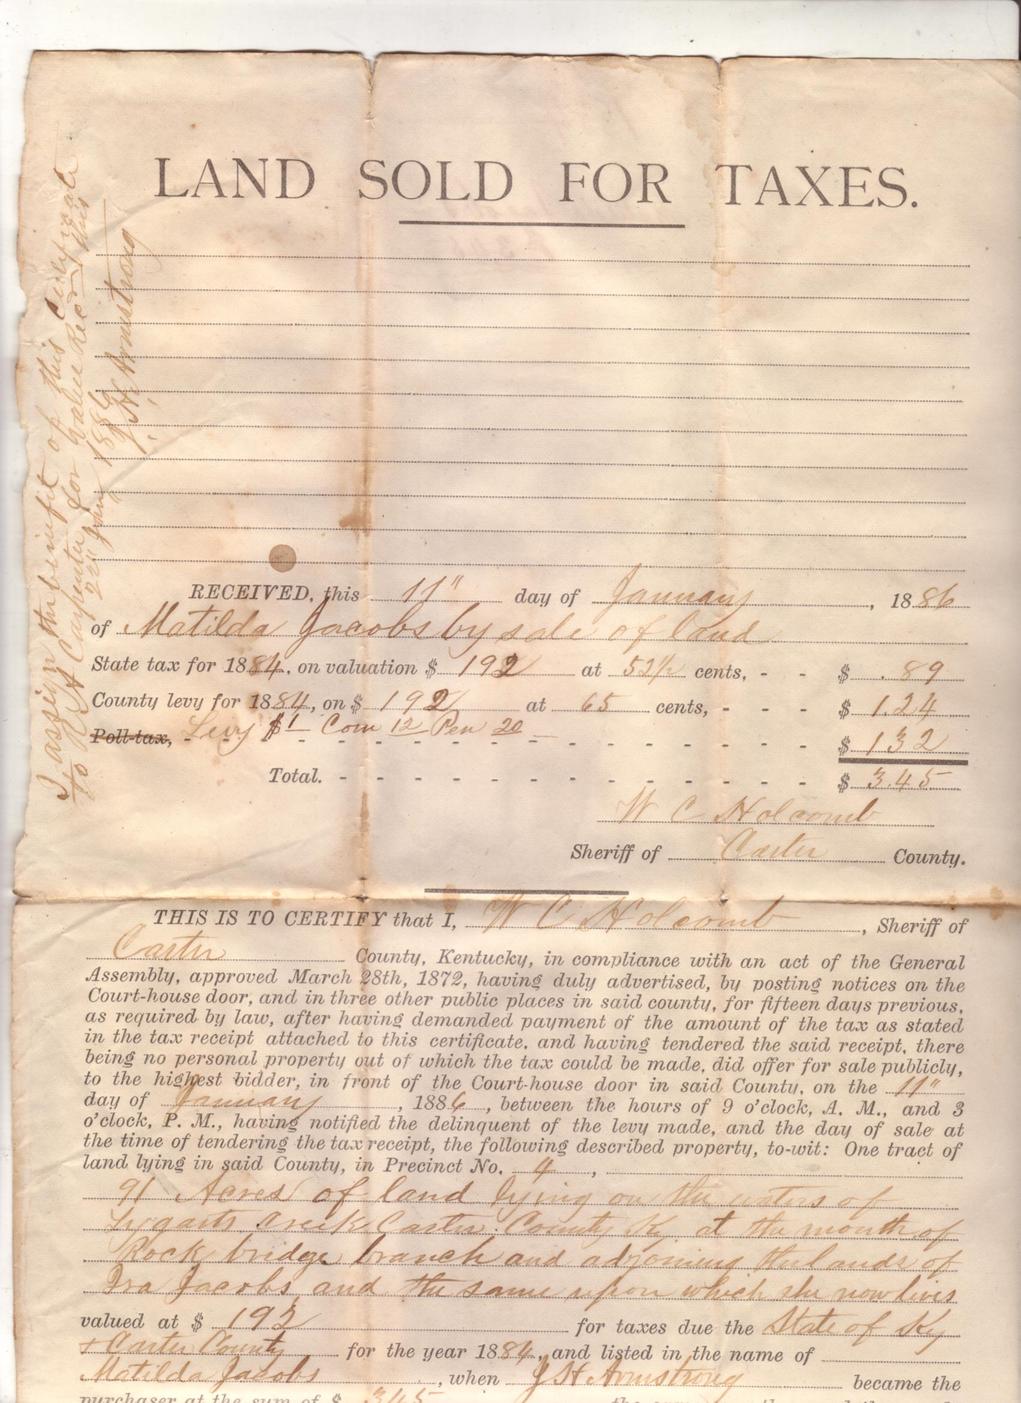 LAND SOLD FOR TAXES.
I assign the benefit of this certificate
To R A Carpenter for value Recd this
22" Jany 1886
J. H. Armstrong
RECEIVED, this 11" day of January, 1886
of Matilda Jacobs by sale of land
State tax for 1884, on valuation $ 192 at 52½ cents, - - $ .89
County levy for 1884, on $ 192 at 65 cents, - - - $ 1.24
Poll-tax, Levy $1 Com 12 Pen 20 - - - $ 132
Total. - - - $ 3.45
W C Holcomb
Sheriff of Carter County.
THIS IS TO CERTIFY that I, W C Holcomb, Sheriff of
Carter County, Kentucky, in compliance with an act of the General
Assembly, approved March 28th, 1872, having duly advertised, by posting notices on the
Court-house door, and in three other public places in said county, for fifteen days previous,
as required by law, after having demanded payment of the amount of the tax as stated
in the tax receipt attached to this certificate, and having tendered the said receipt, there
being no personal property out of which the tax could be made, did offer for sale publicly,
to the highest bidder, in front of the Court-house door in said County, on the 11"
day of January, 1886, between the hours of 9 o'clock, A. M., and 3
o'clock, P. M., having notified the delinquent of the levy made, and the day of sale at
the time of tendering the tax receipt, the following described property, to-wit: One tract of
land lying in said County, in Precinct No. 4,
91 Acres of land lying on the waters of
Tygarts Creek Carter County Ky. at the mouth of
Rock bridge branch and adjoining the lands of
Ira Jacobs and the same upon which she now lives
valued at $ 192 for taxes due the State of Ky
& Carter County for the year 1884, and listed in the name of
Matilda Jacobs, when J H Armstrong became the
purchaser at the sum of $ 3.45